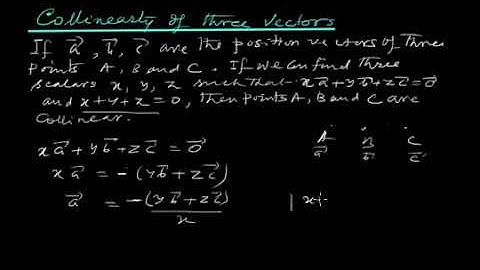 Collinearty of three vectors
If a⃗, b⃗, c⃗ are the position vectors of three
points A, B and C. If we can find three
scalars x, y, z such that x a⃗ + y b⃗ + z c⃗ = 0⃗
and x + y + z = 0, then points A, B and C are
Collinear.
A B C
a⃗ b⃗ c⃗
x a⃗ + y b⃗ + z c⃗ = 0⃗
x a⃗ = -(y b⃗ + z c⃗)
a⃗ = -(y b⃗ + z c⃗) / x
| x+